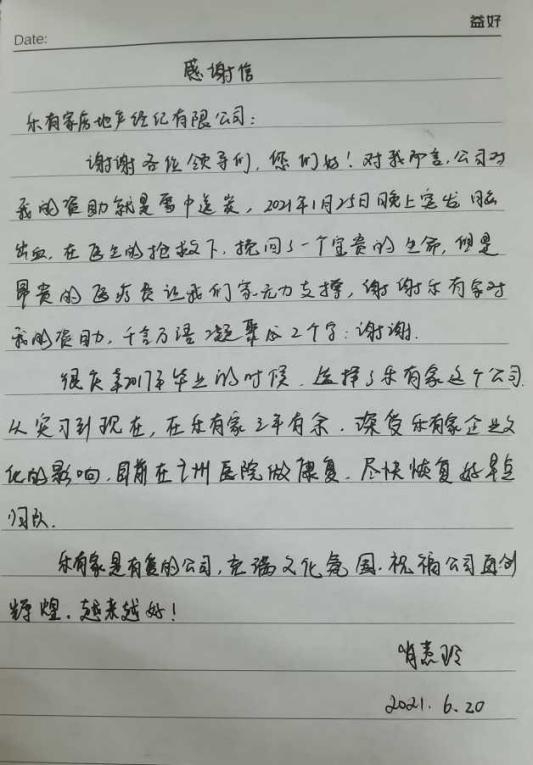 益好
Date:
感谢信
乐有家房地产经纪有限公司:
谢谢各位领导们,您们好!对我而言,公司对
我的资助就是雪中送炭,2021年1月25日晚上突发脑
出血,在医生的抢救下,挽回了一个宝贵的生命,但是
昂贵的医疗费让我们家无力支撑,谢谢乐有家对
我的资助,千言万语凝聚成2个字:谢谢.
很庆幸2017年毕业的时候,选择了乐有家这个公司.
从实习到现在,在乐有家3年有余.深受乐有家企业文
化的影响,目前在广州医院做康复.尽快恢复好早点
归队.
乐有家是有爱的公司,充满文化氛围.祝福公司再创
辉煌.越来越好!
肖惠玲
2021.6.20